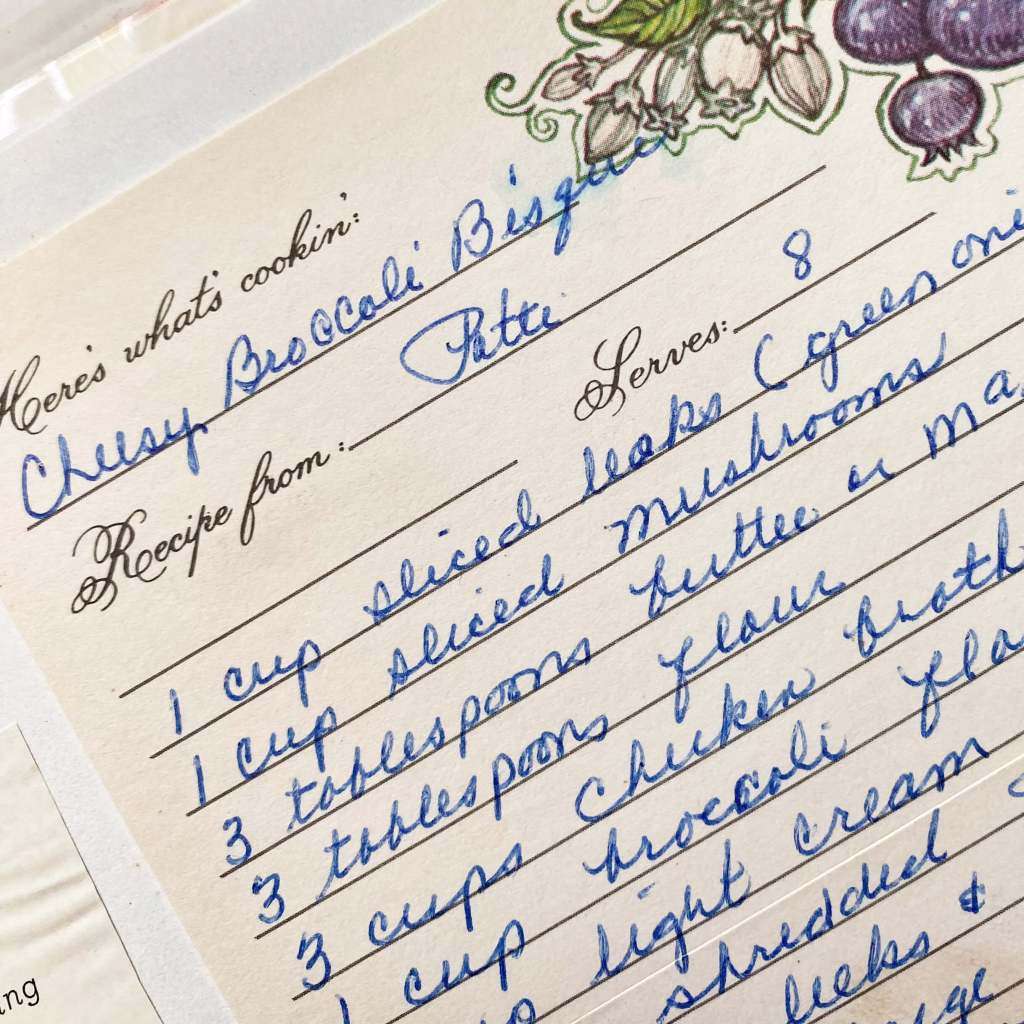 Here's what's cookin':
Cheesy Broccoli Bisque
Recipe from: Patti
Serves: 8
1 cup sliced leaks (green oni
1 cup sliced mushrooms
3 tablespoons butter or ma
3 tablespoons flour
3 cups chicken broth
1 cup broccoli flo
light cream
shredded
leeks &
ing